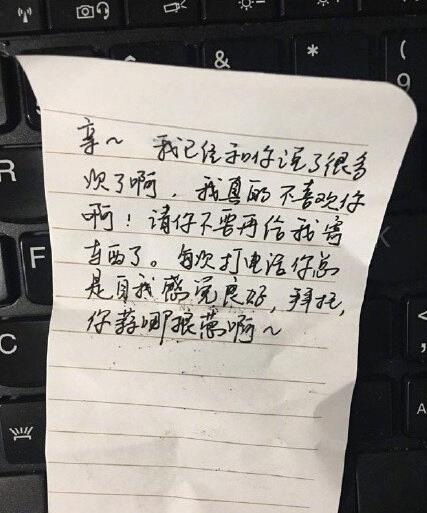 亲~ 我已经和你说了很多
次了啊，我真的不喜欢你
啊！请你不要再给我寄
东西了。每次打电话你总
是自我感觉良好，拜托，
你蒜哪根葱啊~
R
F
C
V
*
(
9
K
<
,
A